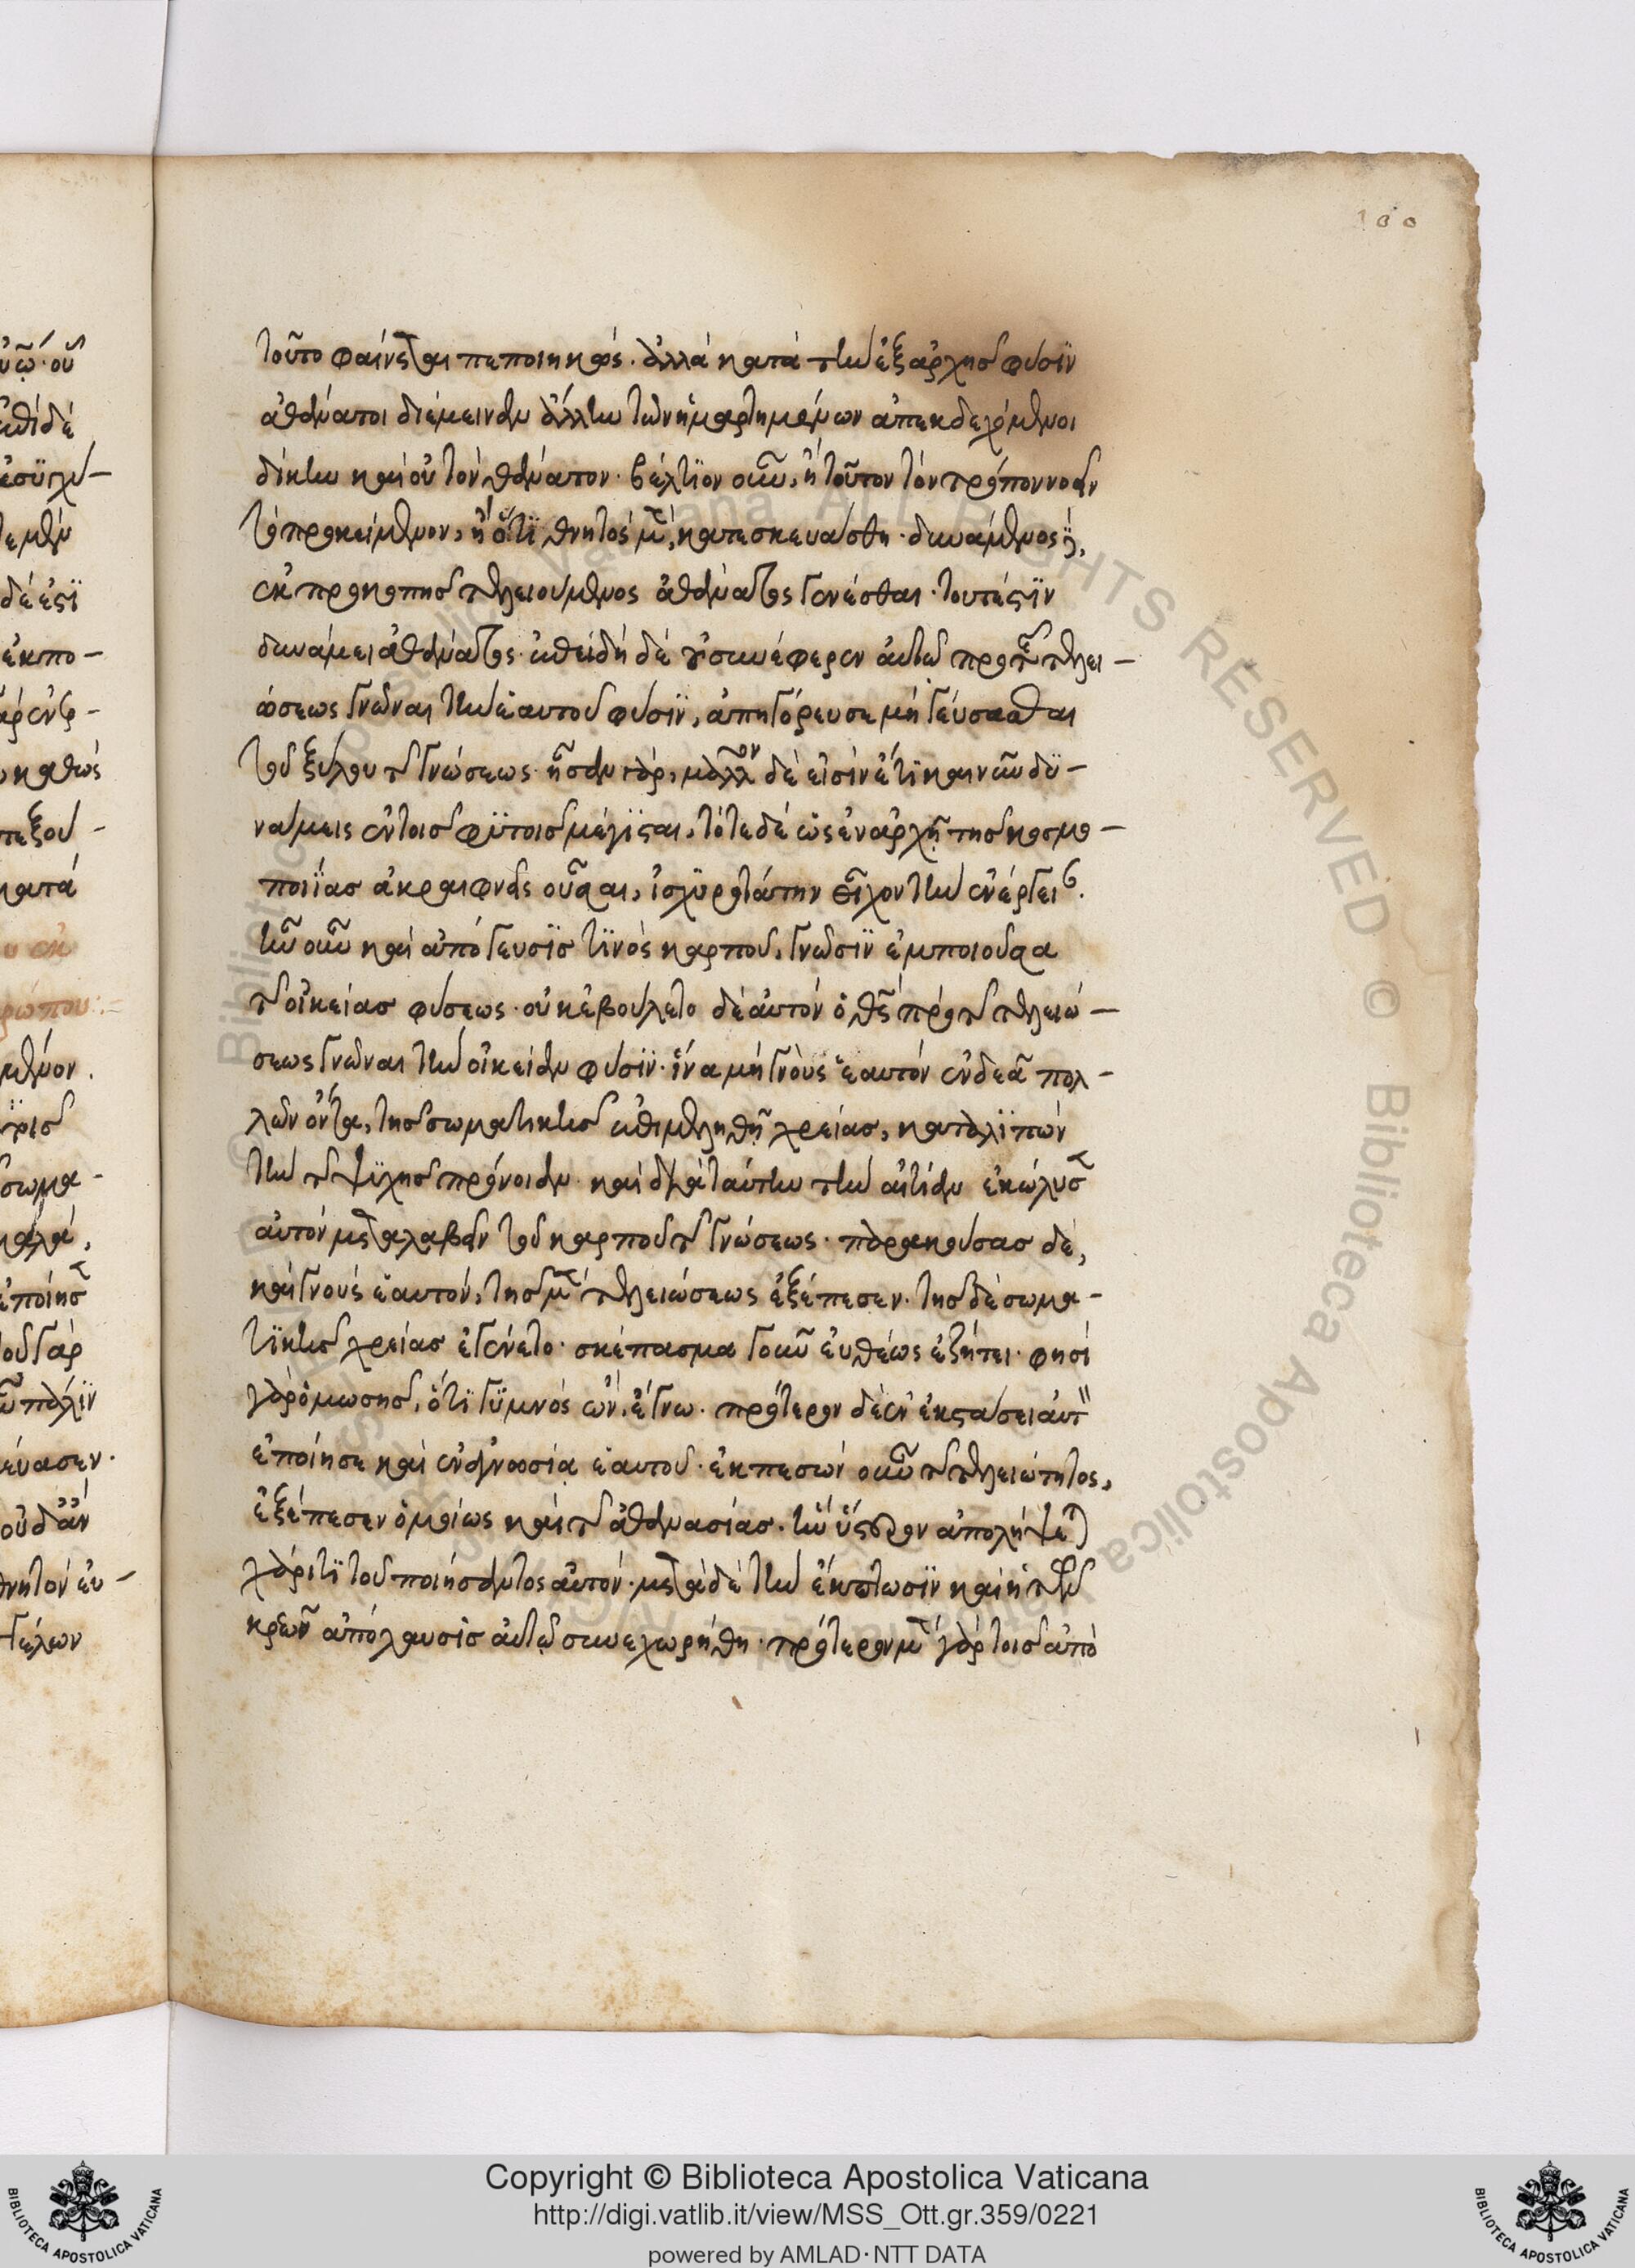 100
τοῦτο φαίνεται πεποιηκώς· ἀλλὰ κατὰ τὴν ἐξαρχῆς φύσϊν
ἀθάνατοι διέμειναν ἄλλην τῶν ἡμαρτημένων ἀπεκδεχόμενοι
δίκην καὶ οὐ τὸν θάνατον· βέλτϊον οὖν, ἢ τοῦτον τὸν τρόπον νοεῖν
τὸ προκείμενον, ἢ ὅτϊ θνητὸς μὲν, κατεσκευάσθη· δυνάμενος
ἐκ προκοπῆς τελειούμενος ἀθάνατος γενέσθαι· τουτέστϊν
δυνάμει ἀθάνατος· ἐπειδὴ δὲ οὐ συνέφερεν αὐτῶ πρὸ τῆς τελει-
ώσεως γνῶναι τὴν ἑαυτοῦ φύσϊν, ἀπηγόρευσε μὴ γεύσασθαι
τοῦ ξύλου τῆς γνώσεως· ἦσαν γὰρ, μᾶλλον δὲ εἰσὶν ἔτϊ καὶ νῦν δϋ-
νάμεις ἐν τοῖς φϋτοῖς μέγϊσται, τότε δὲ ὡς ἐν ἀρχῆ τῆς κοσμο-
ποιΐας ἀκραιφνεῖς οὖσαι, ἰσχϋροτάτην εἶχον τὴν ἐνέργειαν.
ἦν οὖν καὶ ἀπόγευσϊς τϊνὸς καρποῦ, γνῶσϊν ἐμποιοῦσα
τῆς οἰκείας φύσεως· οὐκ ἐβούλετο δὲ αὐτὸν ὁ θς πρὸ τῆς τελειώ-
σεως γνῶναι τὴν οἰκείαν φύσϊν· ἵνα μὴ γνοὺς ἑαυτὸν ἐνδεᾶ πολ-
λῶν ὄντα, τῆς σωματικῆς ἐπιμεληθῆ χρείας, καταλϊπὼν
τὴν τῆς ψϋχῆς πρόνοιαν· καὶ διὰ ταύτην τὴν αἰτίαν ἐκώλυσε
αὐτὸν μεταλαβεῖν τοῦ καρποῦ τῆς γνώσεως· παρακούσας δὲ,
καὶ γνοὺς ἑαυτὸν, τῆς μὲν τελειώσεως ἐξέπεσεν· τῆς δὲ σωμα-
τϊκῆς χρείας ἐγένετο· σκέπασμα γοῦν εὐθέως ἐζήτει· φησὶ
γὰρ ὁ μωσῆς, ὅτϊ γϋμνὸς ὢν, ἔγνω· πρότερον δὲ ἐν ἐκστάσει αὐτὸν
ἐποίησε καὶ ἐν ἀγνωσία ἑαυτοῦ· ἐκπεσὼν οὖν τῆς τελειότητος,
ἐξέπεσεν ὁμοίως καὶ τῆς ἀθανασίας· ἣν ὕστερον ἀπολήψεται
χάριτϊ τοῦ ποιήσαντος αὐτόν· μετὰ δὲ τὴν ἔκπτωσϊν καὶ ἡ τῶν
κρεῶν ἀπόλαυσις αὐτῶ συνεχωρήθη· πρότερον μὲν γὰρ τοῖς ἀπὸ
Copyright © Biblioteca Apostolica Vaticana
http://digi.vatlib.it/view/MSS_Ott.gr.359/0221
powered by AMLAD·NTT DATA